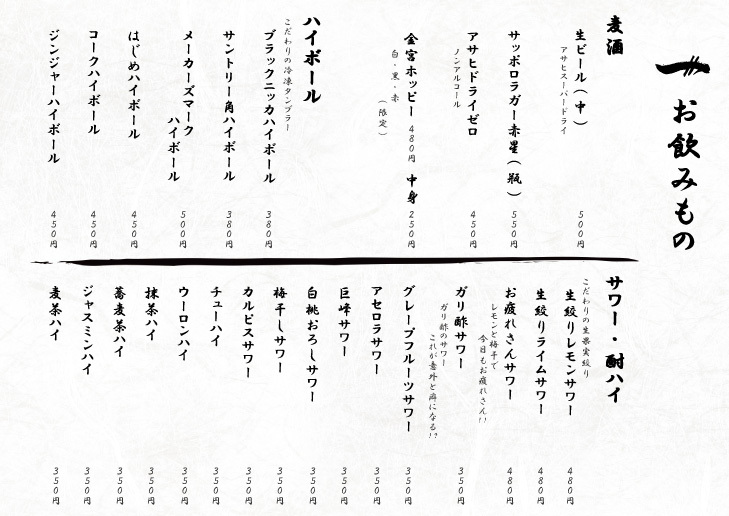 一 お飲みもの
麦酒
生ビール(中) 500円
アサヒスーパードライ
サッポロラガー赤星(瓶) 550円
アサヒドライゼロ 450円
ノンアルコール
金宮ホッピー 480円 中身 250円
白・黒・赤
(限定)
ハイボール
こだわりの冷凍タンブラー
ブラックニッカハイボール 380円
サントリー角ハイボール 380円
メーカーズマーク
ハイボール 500円
はじめハイボール 450円
コークハイボール 450円
ジンジャーハイボール 450円
サワー・酎ハイ
こだわりの生果実絞り
生絞りレモンサワー 480円
生絞りライムサワー 480円
お疲れさんサワー 480円
レモンと梅干で
今日もお疲れさん!!
ガリ酢サワー 350円
ガリ酢のサワー
これが意外と癖になる!?
グレープフルーツサワー 350円
アセロラサワー 350円
巨峰サワー 350円
白桃おろしサワー 350円
梅干しサワー 350円
カルピスサワー 350円
チューハイ 350円
ウーロンハイ 350円
抹茶ハイ 350円
蕎麦茶ハイ 350円
ジャスミンハイ 350円
麦茶ハイ 350円